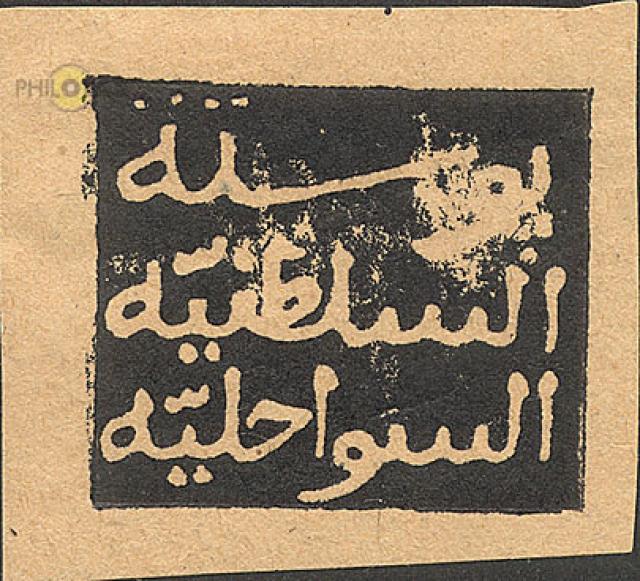 PHILO
بوستة
السلطنية
السواحلية